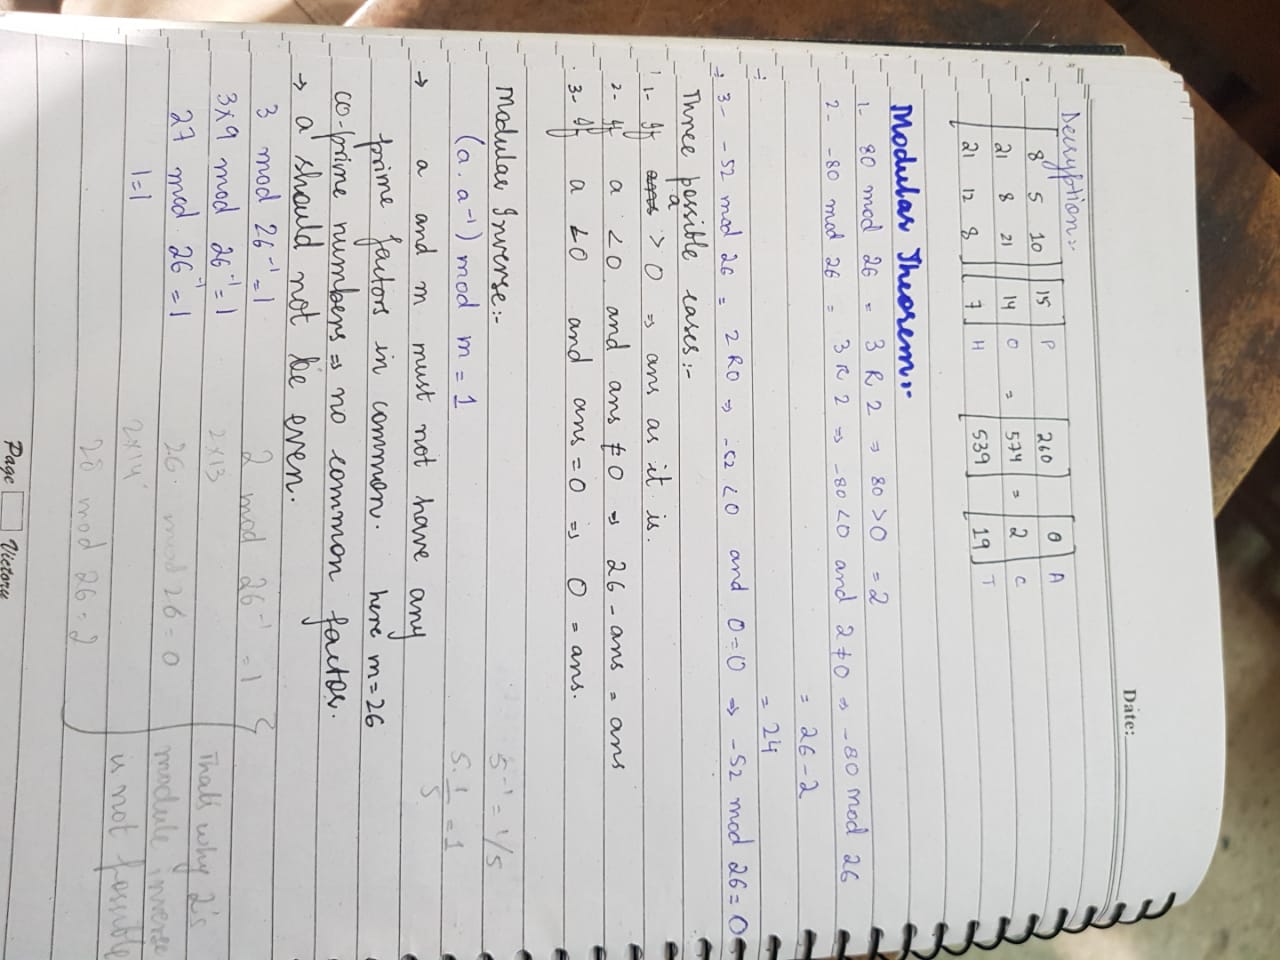 Date:
Decryption:-
8 5 10 15 P 260 0 A
21 8 21 14 O = 574 = 2 C
21 12 8 7 H 539 19 T
Modular Theorem:-
1- 80 mod 26 = 3 R 2 ⇒ 80 > 0 = 2
2- -80 mod 26 = 3 R 2 ⇒ -80 < 0 and 2 ≠ 0 ⇒ -80 mod 26
= 26 - 2
= 24
3- -52 mod 26 = 2 R0 ⇒ -52 < 0 and 0 = 0 ⇒ -52 mod 26 = 0
Three possible cases:-
1- If a > 0 ⇒ ans as it is.
2- If a < 0 and ans ≠ 0 ⇒ 26 - ans = ans
3- If a < 0 and ans = 0 ⇒ 0 = ans.
Modular Inverse:- 5⁻¹ = 1/5
(a . a⁻¹) mod m = 1 5 . 1/5 = 1
→ a and m must not have any
prime factors in common. here m = 26
co-prime numbers ⇒ no common factor.
→ a should not be even.
3 mod 26⁻¹ = 1 2 mod 26⁻¹ = 1
3x9 mod 26⁻¹ = 1 2x13 That's why 2's
27 mod 26⁻¹ = 1 26 mod 26 = 0 module inverse
1 = 1 2x14 is not possible
28 mod 26 = 2
Page Victory